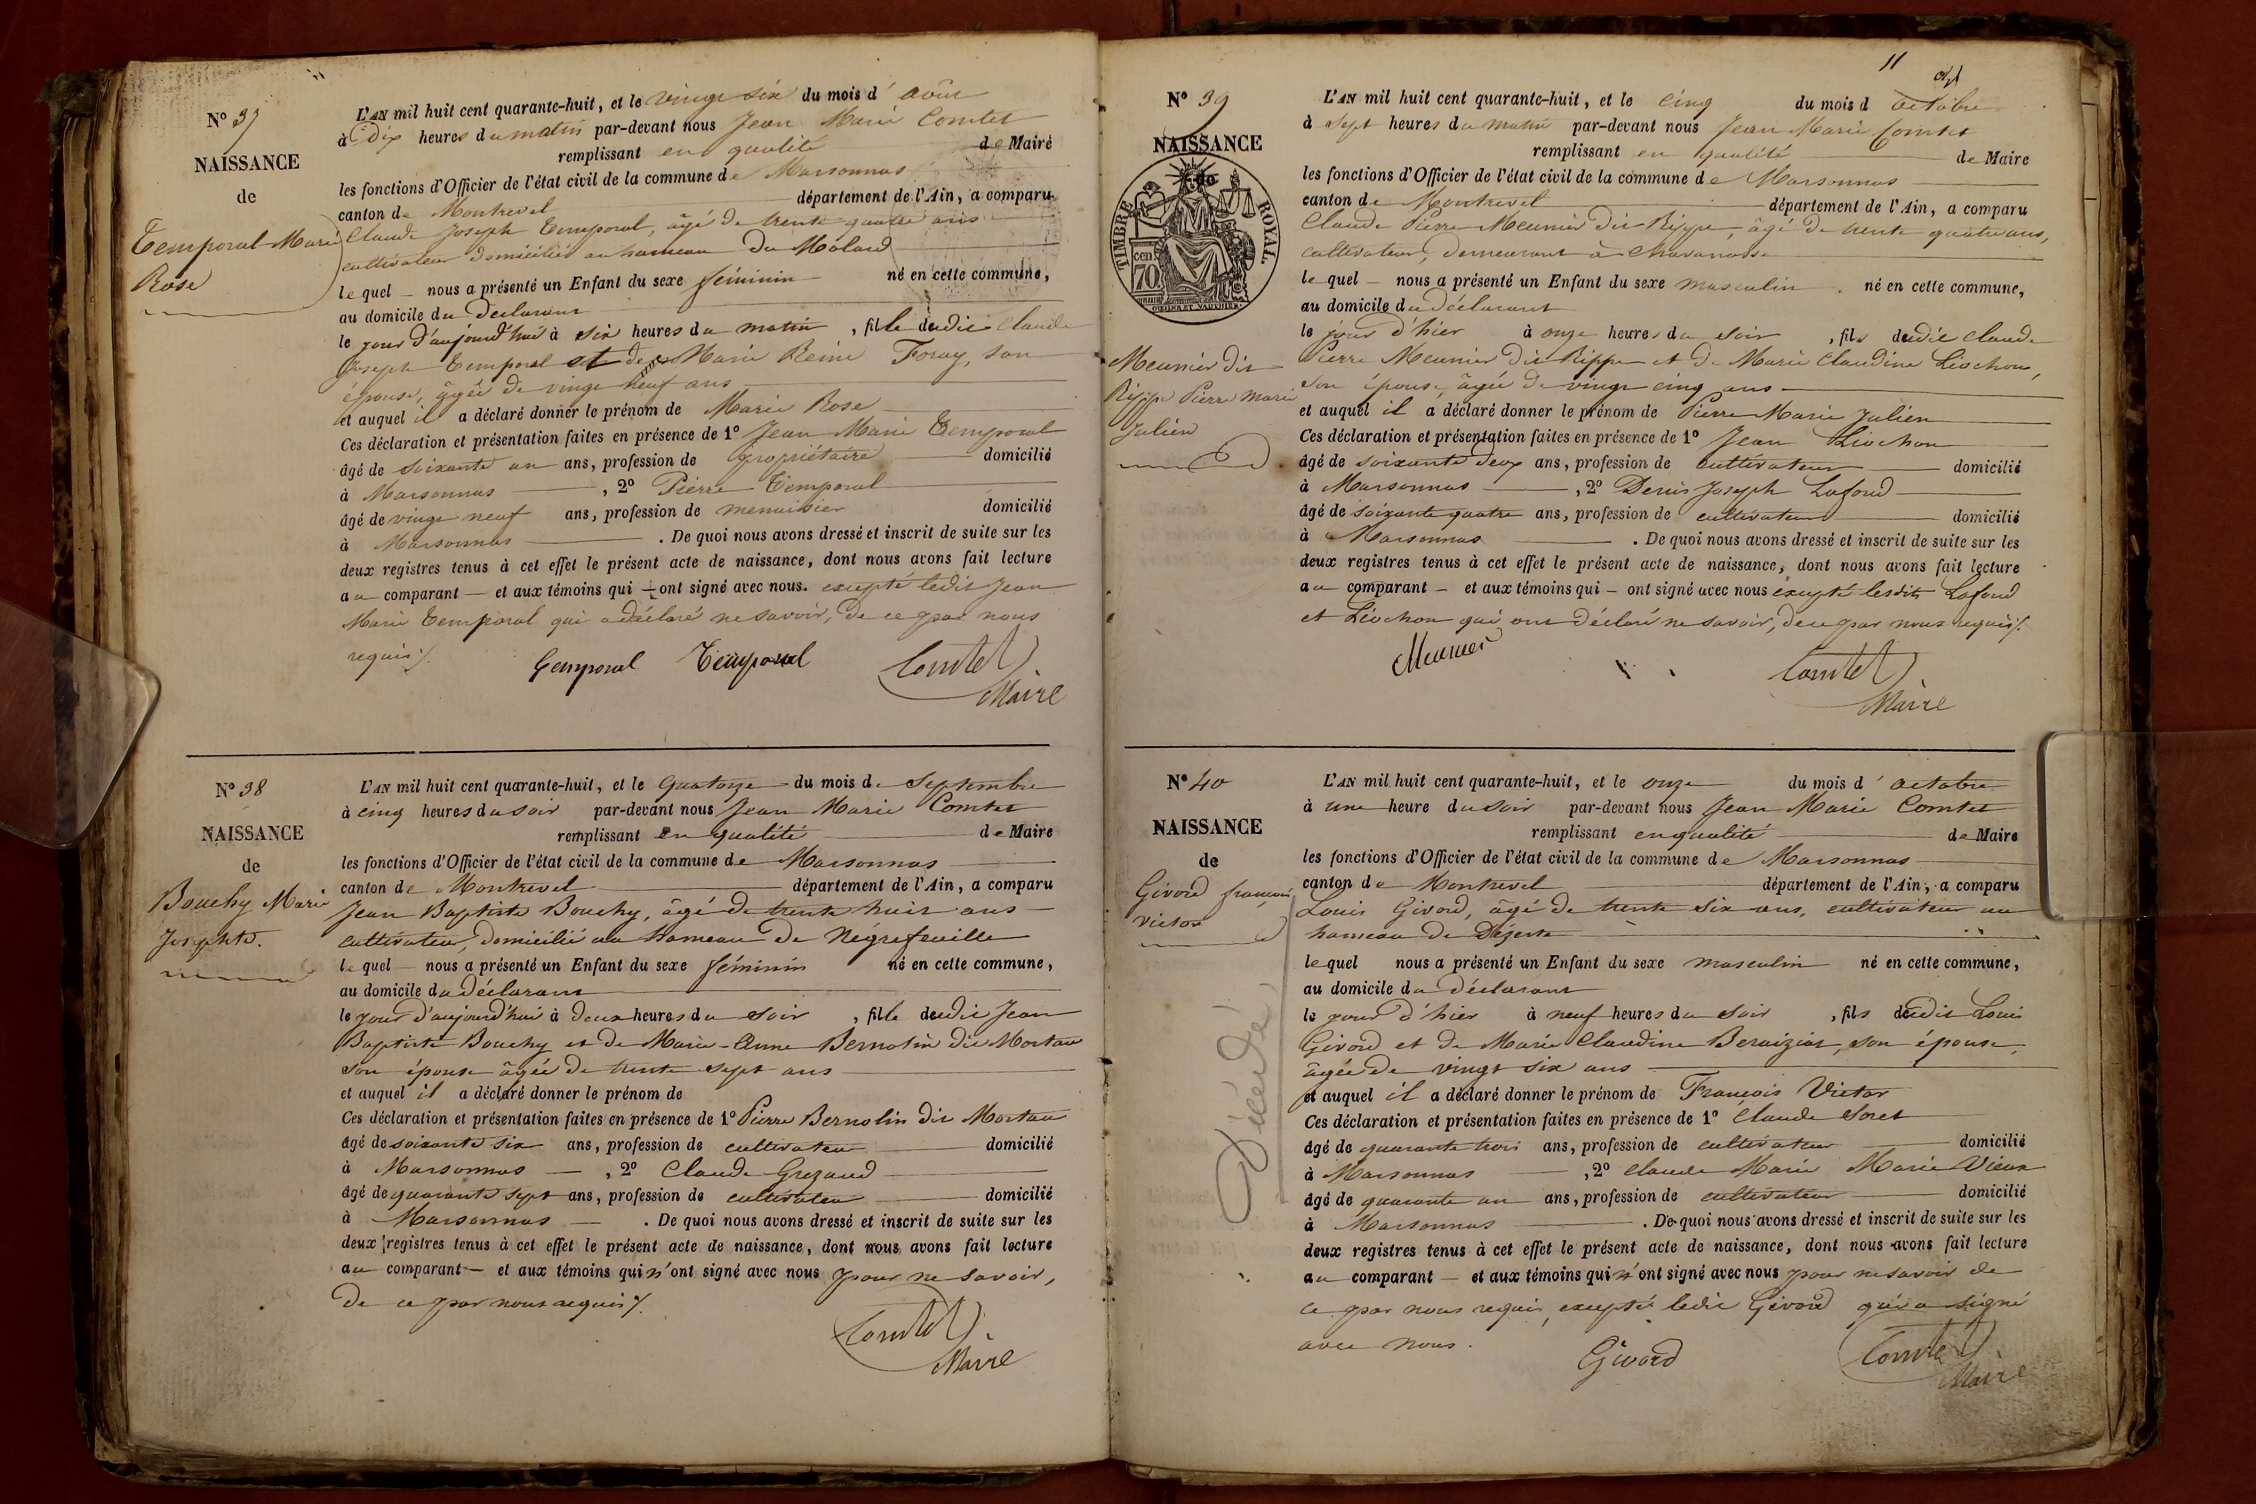 N° 37
NAISSANCE
de
Temporal Marie
Rose
L'AN mil huit cent quarante-huit, et le vingt six du mois d'août
à Dix heures du matin par-devant nous Jean Marie Comtet
remplissant en qualité de Maire
les fonctions d'Officier de l'état civil de la commune de Marsonnas
canton de Montrevel département de l'Ain, a comparu
Claude Joseph Temporal, âgé de trente quatre ans
cultivateur domicilié au hameau du Molard
le quel nous a présenté un Enfant du sexe féminin né en cette commune,
au domicile du déclarant
le jour d'aujourd'hui à six heures du matin, fille dudit Claude
Joseph Temporal et de Marie Reine Foray, son
épouse, âgée de vingt neuf ans
et auquel il a déclaré donner le prénom de Marie Rose
Ces déclaration et présentation faites en présence de 1° Jean Marie Temporal
âgé de soixante un ans, profession de propriétaire domicilié
à Marsonnas, 2° Pierre Temporal
âgé de vingt neuf ans, profession de menuisier domicilié
à Marsonnas. De quoi nous avons dressé et inscrit de suite sur les
deux registres tenus à cet effet le présent acte de naissance, dont nous avons fait lecture
au comparant et aux témoins qui ont signé avec nous. excepté ledit Jean
Marie Temporal qui a déclaré ne savoir, de ce par nous
requis
Temporal Temporal Comtet
Maire
N° 38
NAISSANCE
de
Bouchy Marie
Josephte.
L'AN mil huit cent quarante-huit, et le Quatorze du mois de Septembre
à cinq heures du soir par-devant nous Jean Marie Comtet
remplissant en qualité de Maire
les fonctions d'Officier de l'état civil de la commune de Marsonnas
canton de Montrevel département de l'Ain, a comparu
Jean Baptiste Bouchy, âgé de trente huit ans
cultivateur, domicilié au hameau de Négrefeuille
le quel nous a présenté un Enfant du sexe féminin né en cette commune,
au domicile du déclarant
le jour d'aujourd'hui à deux heures du soir, fille dudit Jean
Baptiste Bouchy et de Marie-Anne Bernolin dit Mortau
son épouse âgée de trente sept ans
et auquel il a déclaré donner le prénom de
Ces déclaration et présentation faites en présence de 1° Pierre Bernolin dit Mortau
âgé de soixante six ans, profession de cultivateur domicilié
à Marsonnas, 2° Claude Grezaud
âgé de quarante sept ans, profession de cultivateur domicilié
à Marsonnas. De quoi nous avons dressé et inscrit de suite sur les
deux registres tenus à cet effet le présent acte de naissance, dont nous avons fait lecture
au comparant et aux témoins qui n'ont signé avec nous pour ne savoir,
de ce par nous requis
Comtet
Maire
11
N° 39
NAISSANCE
de
TIMBRE ROYAL
70 cen
Meunier dit
Rippe Pierre Marie
Julien
L'AN mil huit cent quarante-huit, et le cinq du mois d octobre
à sept heures du matin par-devant nous Jean Marie Comtet
remplissant en qualité de Maire
les fonctions d'Officier de l'état civil de la commune de Marsonnas
canton de Montrevel département de l'Ain, a comparu
Claude Pierre Meunier dit Rippe, âgé de trente quatre ans,
cultivateur, demeurant à Chavanosse
le quel nous a présenté un Enfant du sexe masculin né en cette commune,
au domicile du déclarant
le jour d'hier à onze heures du soir, fils dudit Claude
Pierre Meunier dit Rippe et de Marie Claudine Liochon,
son épouse, âgée de vingt cinq ans
et auquel il a déclaré donner le prénom de Pierre Marie Julien
Ces déclaration et présentation faites en présence de 1° Jean Liochon
âgé de soixante deux ans, profession de cultivateur domicilié
à Marsonnas, 2° Denis Joseph Lafond
âgé de soixante quatre ans, profession de cultivateur domicilié
à Marsonnas. De quoi nous avons dressé et inscrit de suite sur les
deux registres tenus à cet effet le présent acte de naissance, dont nous avons fait lecture
au comparant et aux témoins qui ont signé avec nous excepté lesdits Lafond
et Liochon qui ont déclaré ne savoir, de ce par nous requis
Meunier Comtet
Maire
N° 40
NAISSANCE
de
Givord françois
Victor
Décédé
L'AN mil huit cent quarante-huit, et le onze du mois d'octobre
à une heure du soir par-devant nous Jean Marie Comtet
remplissant en qualité de Maire
les fonctions d'Officier de l'état civil de la commune de Marsonnas
canton de Montrevel département de l'Ain, a comparu
Louis Givord, âgé de trente six ans, cultivateur au
hameau de Dézerte
le quel nous a présenté un Enfant du sexe masculin né en cette commune,
au domicile du déclarant
le jour d'hier à neuf heures du soir, fils dudit Louis
Givord et de Marie Claudine Beraiziat, son épouse,
âgée de vingt six ans
et auquel il a déclaré donner le prénom de François Victor
Ces déclaration et présentation faites en présence de 1° Claude Soret
âgé de quarante trois ans, profession de cultivateur domicilié
à Marsonnas, 2° Claude Marie Marie Vieux
âgé de quarante un ans, profession de cultivateur domicilié
à Marsonnas. De quoi nous avons dressé et inscrit de suite sur les
deux registres tenus à cet effet le présent acte de naissance, dont nous avons fait lecture
au comparant et aux témoins qui n'ont signé avec nous pour ne savoir de
ce par nous requis, excepté ledit Givord qui a signé
avec nous.
Givord Comtet
Maire